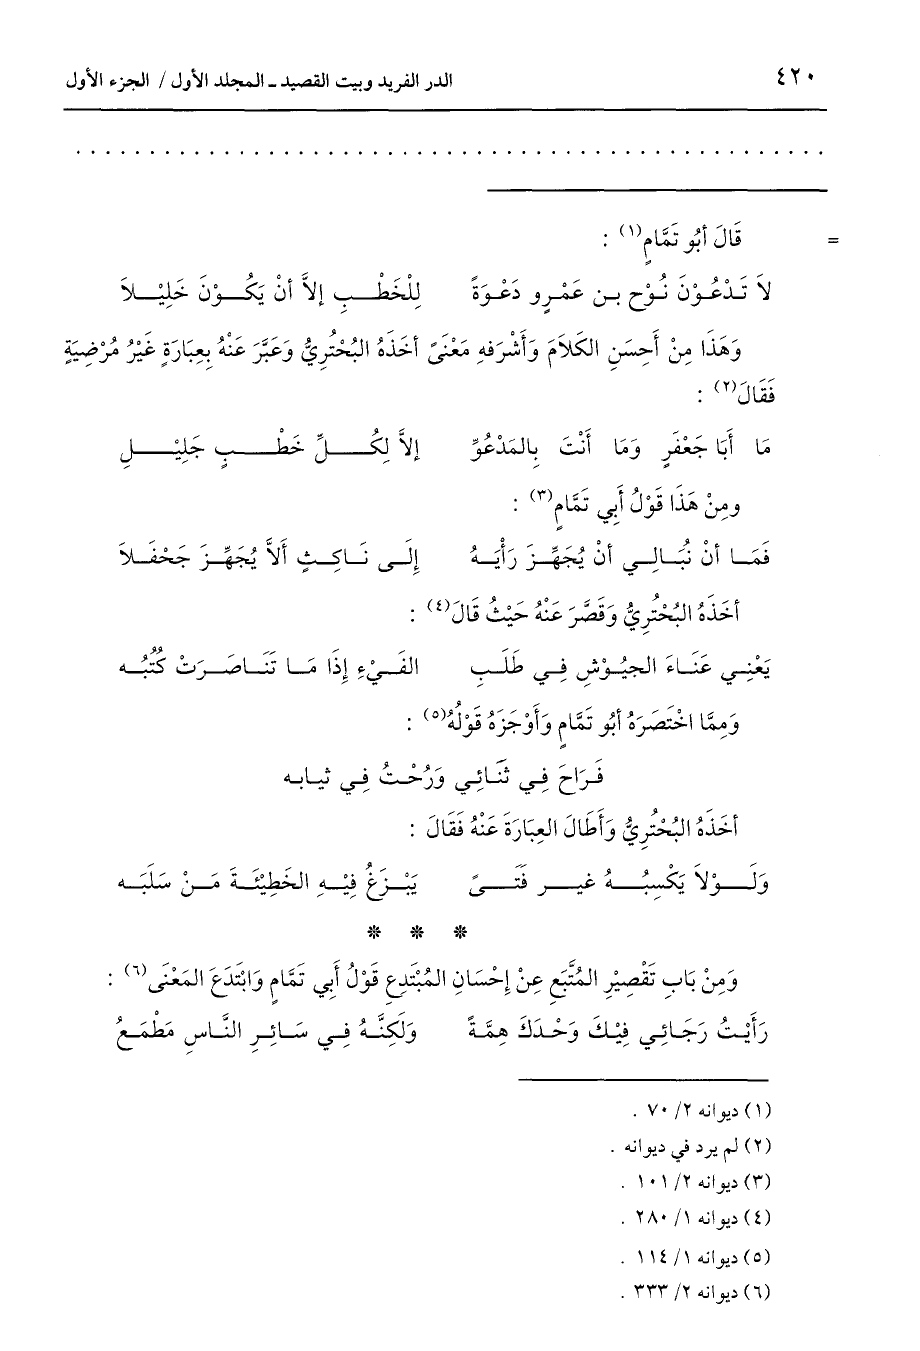 ٤٢٠ الدر الفريد وبيت القصيد ـ المجلد الأول / الجزء الأول
. . . . . . . . . . . . . . . . . . . . . . . . . . . . . . . . . . . . . . . . . . . . . . . . . .
= قَالَ أبُو تَمَّامٍ(١) :
لاَ تَدْعُوَنْ نُوْحَ بن عَمْرِو دَعْوَةً لِلْخَطْبِ إلاَّ أنْ يَكُوْنَ خَلِيْلاَ
وَهَذَا مِنْ أَحِسَنِ الكَلاَمَ وَأَشْرَفهِ مَعْنَىً أخَذَهُ البُحْتُرِيُّ وَعَبَّرَ عَنْهُ بِعِبَارَةٍ غَيْرُ مُرْضِيَةٍ
فَقَالَ(٢) :
مَا أَبَا جَعْفَرٍ وَمَا أَنْتَ بِالمَدْعُوِّ إلاَّ لِكُلِّ خَطْبٍ جَلِيْلِ
ومِنْ هَذَا قَوْلُ أَبِي تَمَّامٍ(٣) :
فَمَا أنْ نُبَالِي أنْ يُجَهِّزَ رَأْيَهُ إِلَى نَاكِثٍ أَلاَّ يُجَهِّزَ جَحْفَلاَ
أخَذَهُ البُحْتُرِيُّ وَقَصَّرَ عَنْهُ حَيْثُ قَالَ(٤) :
يَعْنِي عَنَاءَ الجيُوْشِ فِي طَلَبِ الفَيْءِ إِذَا مَا تَنَاصَرَتْ كُتُبُه
وَمِمَّا اخْتَصَرَهُ أبُو تَمَّامٍ وَأوْجَزَهُ قَوْلُهُ(٥) :
فَرَاحَ فِي ثَنَائِي وَرُحْتُ فِي ثيابه
أخَذَهُ البُحْتُرِيُّ وَأَطَالَ العِبَارَةَ عَنْهُ فَقَالَ :
وَلَوْلاَ يَكْسِبُهُ غير فَتَىً يَنْزَغُ فِيْهِ الخَطِيْئَةَ مَنْ سَلَبَه
* * *
وَمِنْ بَابِ تَقْصِيْرِ المُتَّبَعِ عِنْ إِحْسَانِ المُبْتَدِعِ قَوْلُ أَبِي تَمَّامٍ وَابْتَدَعَ المَعْنَى(٦) :
رَأَيْتُ رَجَائِي فِيْكَ وَحْدَكَ هِمَّةً وَلَكِنَّهُ فِي سَائِرِ النَّاسِ مَطْمَعُ
(١) ديوانه ٢/ ٧٠ .
(٢) لم يرد في ديوانه .
(٣) ديوانه ٢/ ١٠١ .
(٤) ديوانه ١/ ٢٨٠ .
(٥) ديوانه ١/ ١١٤ .
(٦) ديوانه ٢/ ٣٣٣ .